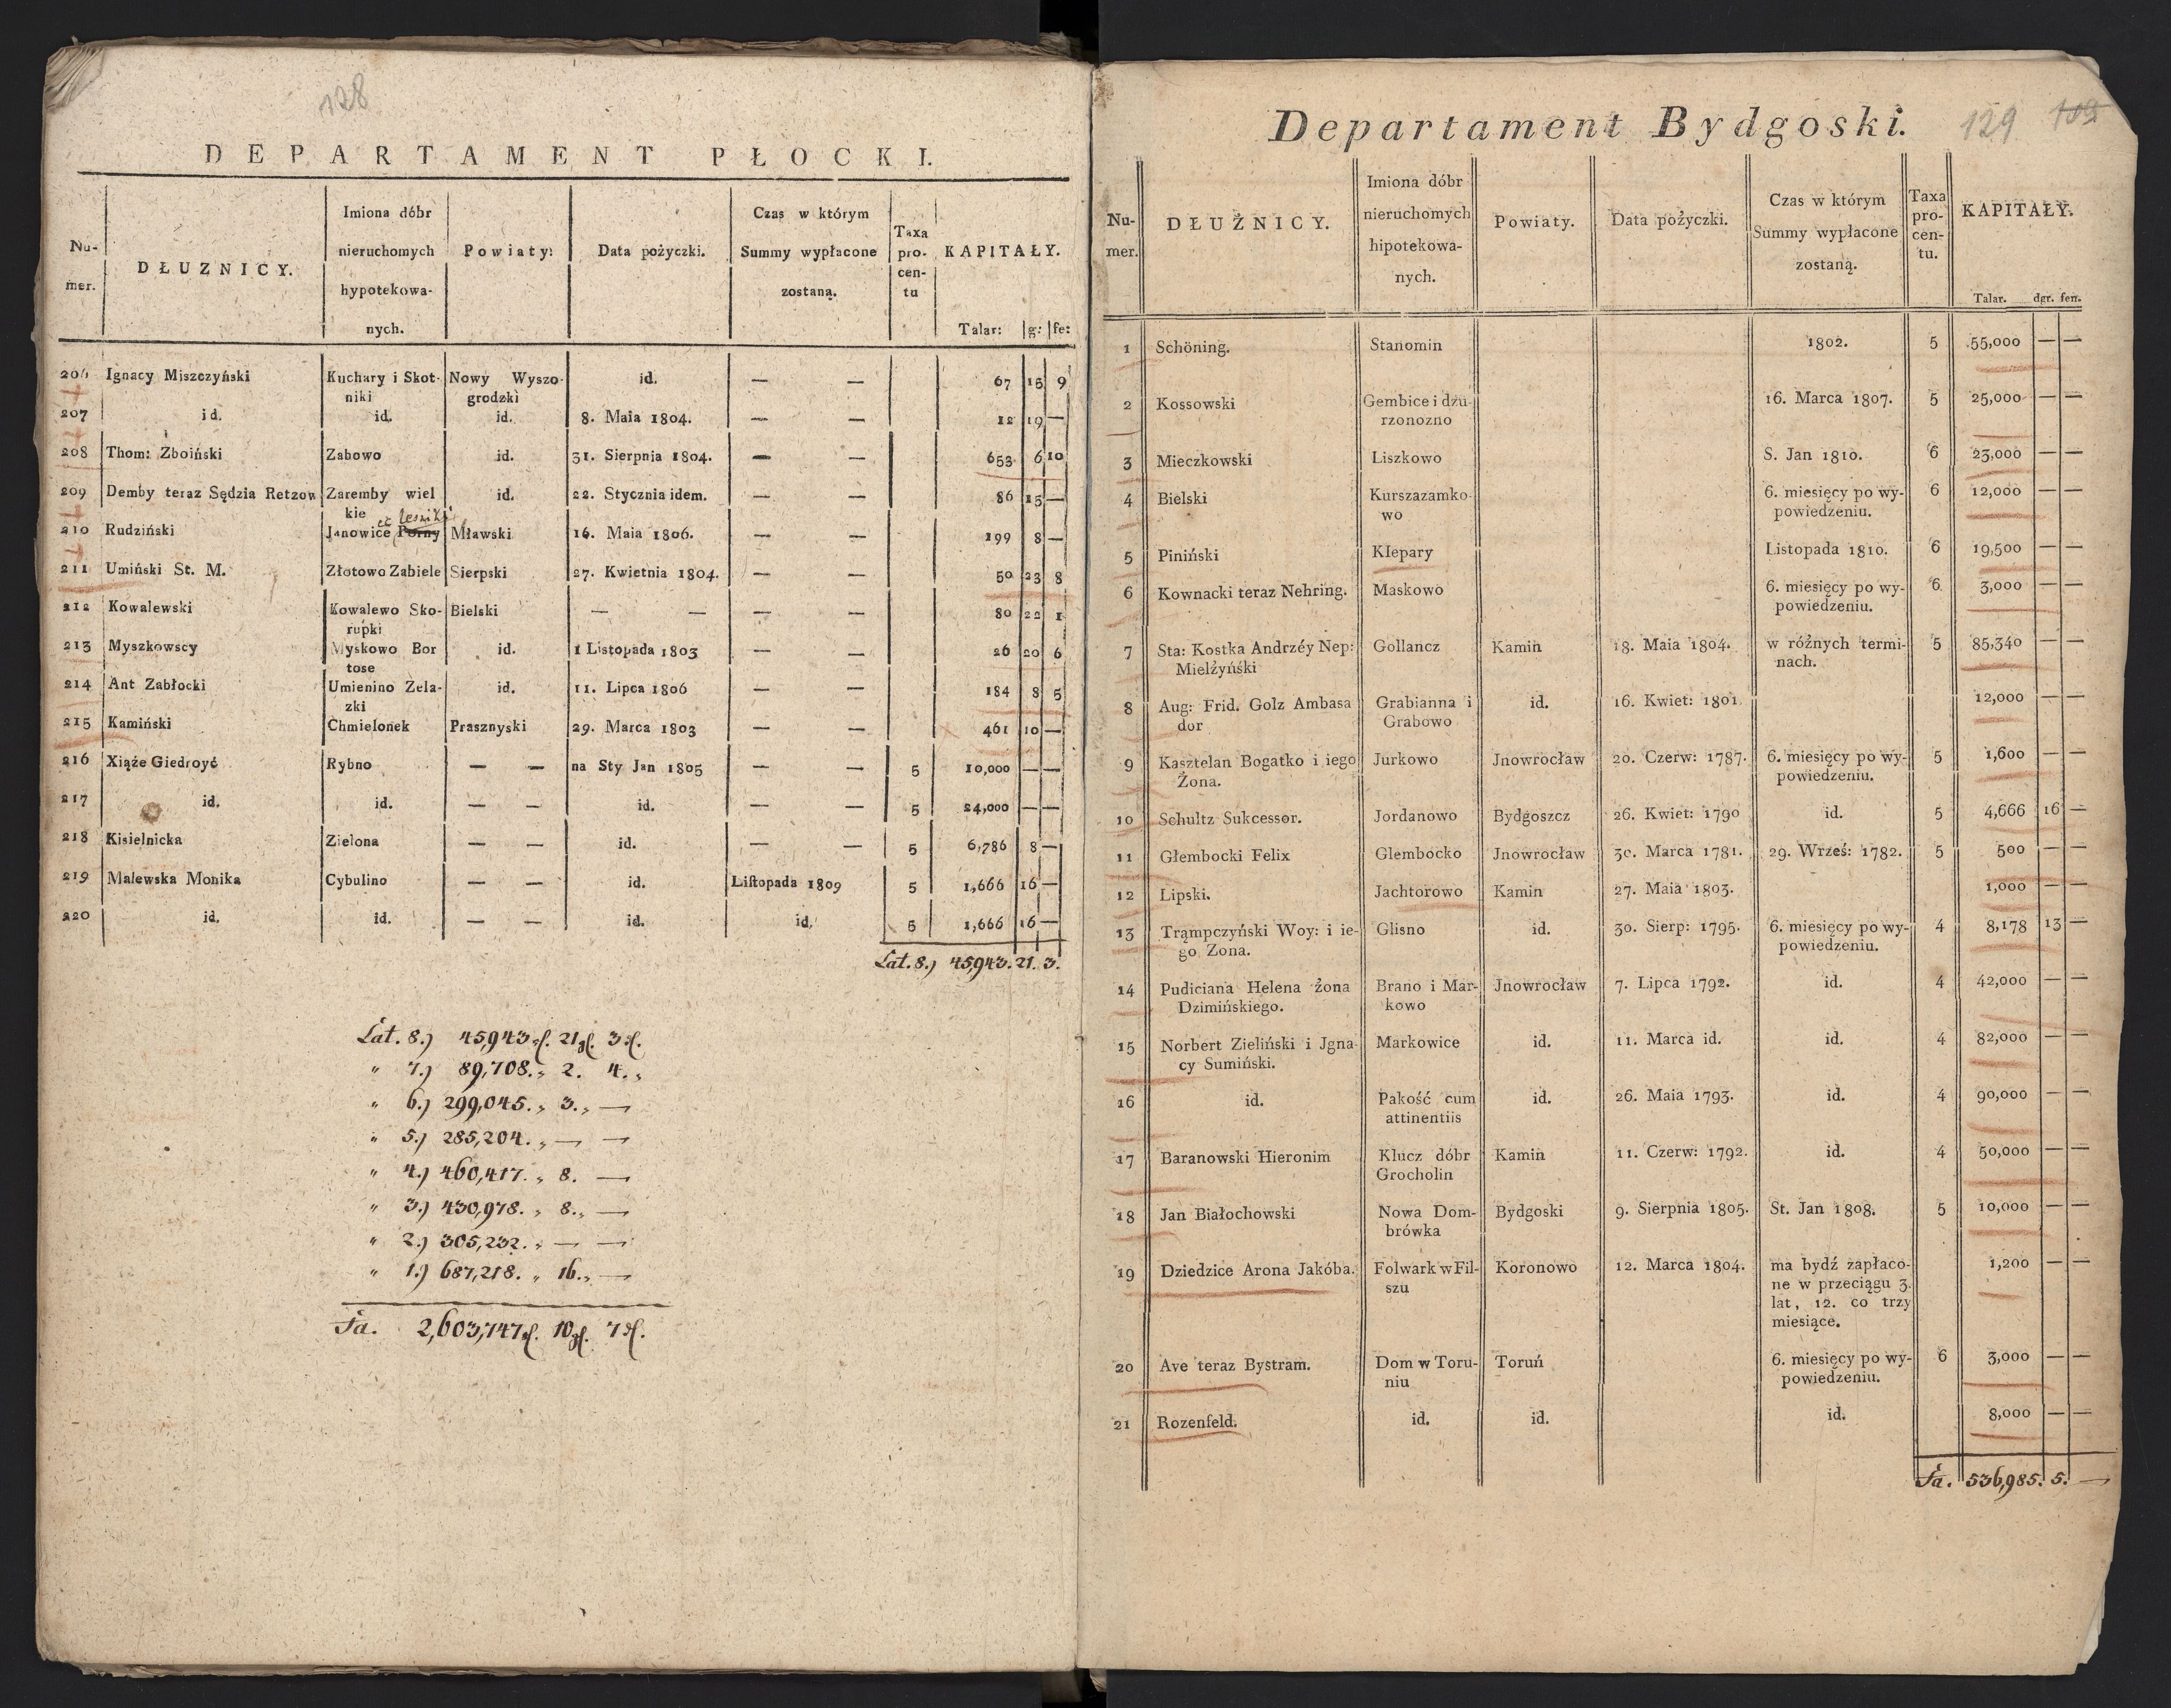 128
DEPARTAMENT PŁOCKI.
Nu-
mer.
DŁUZNICY.
Imiona dóbr
nieruchomych
hypotekowa-
nych.
Powiaty:
Data pożyczki.
Czas w którym
Summy wypłacone
zostaną.
Taxa
pro-
cen-
tu
KAPITAŁY.
Talar: g: fe:
206 Ignacy Miszczyński Kuchary i Skot- Nowy Wyszo- id. — — 67 15 9
niki grodzki
207 id. id. id. 8. Maia 1804. — — 12 19 —
208 Thom: Zboiński Zabowo id. 31. Sierpnia 1804. — — 653 6 10
209 Demby teraz Sędzia Retzow Zaremby wiel id. 22. Stycznia idem. — — 86 15 —
kie
210 Rudziński Janowice Porny Mławski 16. Maia 1806. — — 199 8 —
211 Umiński St. M. Złotowo Zabiele Sierpski 27. Kwietnia 1804. — — 50 23 8
212 Kowalewski Kowalewo Sko- Bielski — — — — 80 22 1
rupki
213 Myszkowscy Myskowo Bor id. 1 Listopada 1803 — — 26 20 6
tose
214 Ant Zabłocki Umienino Zela- id. 11. Lipca 1806 — — 184 8 5
zki
215 Kamiński Chmielonek Prasznyski 29. Marca 1803 — — 461 10 —
216 Xiąże Giedroyć Rybno — — na Sty Jan 1805 — — 5 10,000 — —
217 id. id. — — id. — — 5 24,000 — —
218 Kisielnicka Zielona — — id. — — 5 6,786 8 —
219 Malewska Monika Cybulino — — id. Listopada 1809 5 1,666 16 —
220 id. id. — — id. id. 5 1,666 16 —
Lat. 8.) 45943. 21. 3.
Lat. 8.) 45,943 21 3
" 7.) 89,708. 2. 4.
" 6.) 299,045. 3. —
" 5.) 285,204. — —
" 4.) 460,417. 8. —
" 3.) 430,978. 8. —
" 2.) 305,232. — —
" 1.) 687,218. 16. —
Sa. 2,603,747 10 7
Departament Bydgoski.
129 109
Nu-
mer.
DŁUŻNICY.
Imiona dóbr
nieruchomych
hipotekowa-
nych.
Powiaty.
Data pożyczki.
Czas w którym
Summy wypłacone
zostaną.
Taxa
pro-
cen-
tu.
KAPITAŁY.
Talar. dgr. fen.
1 Schöning. Stanomin 1802. 5 55,000 — —
2 Kossowski Gembice i dżu- 16. Marca 1807. 5 25,000 — —
rzonozno
3 Mieczkowski Liszkowo S. Jan 1810. 6 23,000 — —
4 Bielski Kurszazamko- 6. miesięcy po wy- 6 12,000 — —
wo powiedzeniu.
5 Piniński Klepary Listopada 1810. 6 19,500 — —
6 Kownacki teraz Nehring. Maskowo 6. miesięcy po wy- 6 3,000 — —
powiedzeniu.
7 Sta: Kostka Andrzéy Nep: Gollancz Kamin 18. Maia 1804. w różnych termi- 5 85,340 — —
Mielżyński nach.
8 Aug: Frid. Golz Ambasa Grabianna i id. 16. Kwiet: 1801. 12,000 — —
dor Grabowo
9 Kasztelan Bogatko i iego Jurkowo Jnowrocław 20. Czerw: 1787. 6. miesięcy po wy- 5 1,600 — —
Żona. powiedzeniu.
10 Schultz Sukcessor. Jordanowo Bydgoszcz 26. Kwiet: 1790 id. 5 4,666 16 —
11 Głembocki Felix Glembocko Jnowrocław 30. Marca 1781. 29. Wrześ: 1782. 5 500 — —
12 Lipski. Jachtorowo Kamin 27. Maia 1803. 1,000 — —
13 Trąmpczyński Woy: i ie- Glisno id. 30. Sierp: 1795. 6. miesięcy po wy- 4 8,178 13 —
go Zona. powiedzeniu.
14 Pudiciana Helena żona Brano i Mar- Jnowrocław 7. Lipca 1792. id. 4 42,000 — —
Dzimińskiego. kowo
15 Norbert Zieliński i Jgna- Markowice id. 11. Marca id. id. 4 82,000 — —
cy Sumiński.
16 id. Pakość cum id. 26. Maia 1793. id. 4 90,000 — —
attinentiis
17 Baranowski Hieronim Klucz dóbr Kamin 11. Czerw: 1792. id. 4 50,000 — —
Grocholin
18 Jan Białochowski Nowa Dom- Bydgoski 9. Sierpnia 1805. St. Jan 1808. 5 10,000 — —
brówka
19 Dziedzice Arona Jakóba. Folwark w Fil- Koronowo 12. Marca 1804. ma bydź zapłaco- 1,200 — —
szu ne w przeciągu 3.
lat, 12. co trzy
miesiące.
20 Ave teraz Bystram. Dom w Toru- Toruń 6. miesięcy po wy- 6 3,000 — —
niu powiedzeniu.
21 Rozenfeld. id. id. id. 8,000 — —
Sa. 536,985. 5. —